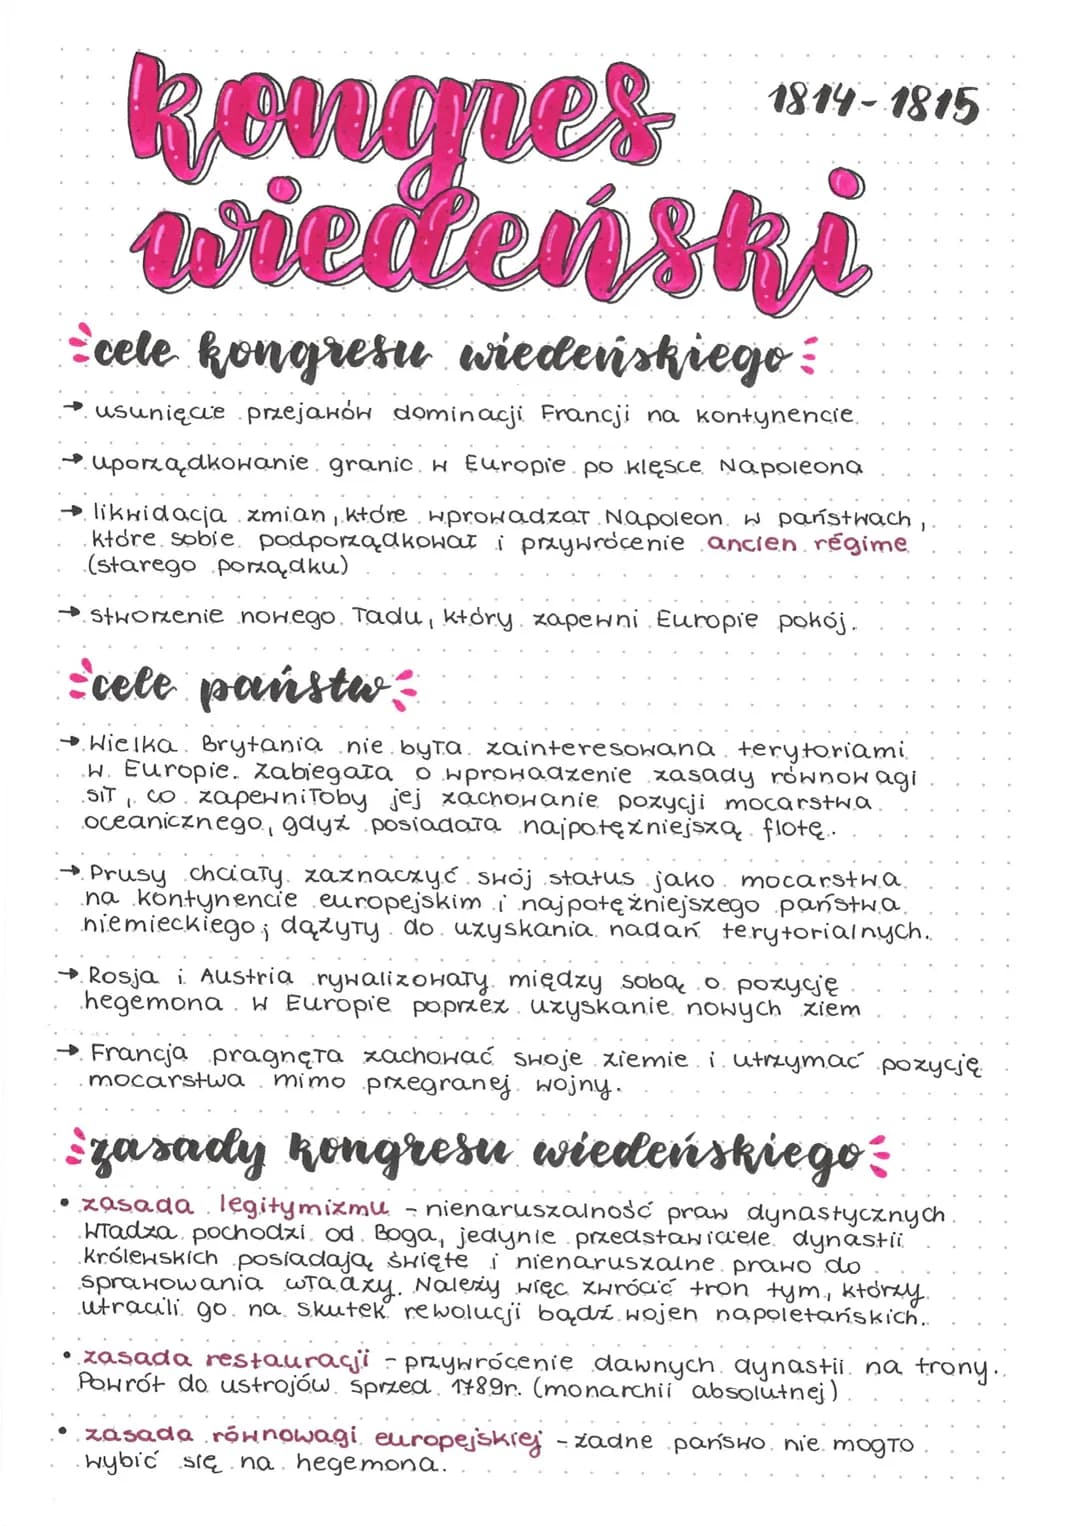 kongres
1814-1815
wiedeński
cele kongresu wiedeńskiego
→ usunięcie przejawów dominacji Francji na kontynencie
→ uporządkowanie granic w Europie po klęsce Napoleona
→ likwidacja zmian, które wprowadzał Napoleon w państwach,
które sobie podporządkował i przywrócenie ancien régime
(starego porządku)
→ stworzenie nowego ładu, który zapewni Europie pokój.
cele państw
→ Wielka Brytania nie była zainteresowana terytoriami
w Europie. Zabiegała o wprowadzenie zasady równowagi
sił, co zapewniłoby jej zachowanie pozycji mocarstwa
oceanicznego, gdyż posiadała najpotężniejszą flotę.
→ Prusy chciały zaznaczyć swój status jako mocarstwa
na kontynencie europejskim i najpotężniejszego państwa
niemieckiego; dążyły do uzyskania nadań terytorialnych.
→ Rosja i Austria rywalizowały między sobą o pozycję
hegemona w Europie poprzez uzyskanie nowych ziem
→ Francja pragnęła zachować swoje ziemie i utrzymać pozycję
mocarstwa mimo przegranej wojny.
zasady kongresu wiedeńskiego
• zasada legitymizmu - nienaruszalność praw dynastycznych
Władza pochodzi od Boga, jedynie przedstawiciele dynastii
królewskich posiadają święte i nienaruszalne prawo do
sprawowania władzy. Należy więc zwrócić tron tym, którzy
utracili go na skutek rewolucji bądź wojen napoleńskich.
• zasada restauracji - przywrócenie dawnych dynastii na trony.
Powrót do ustrojów sprzed 1789r. (monarchii absolutnej)
• zasada równowagi europejskiej - żadne państwo nie mogło
wybić się na hegemona.